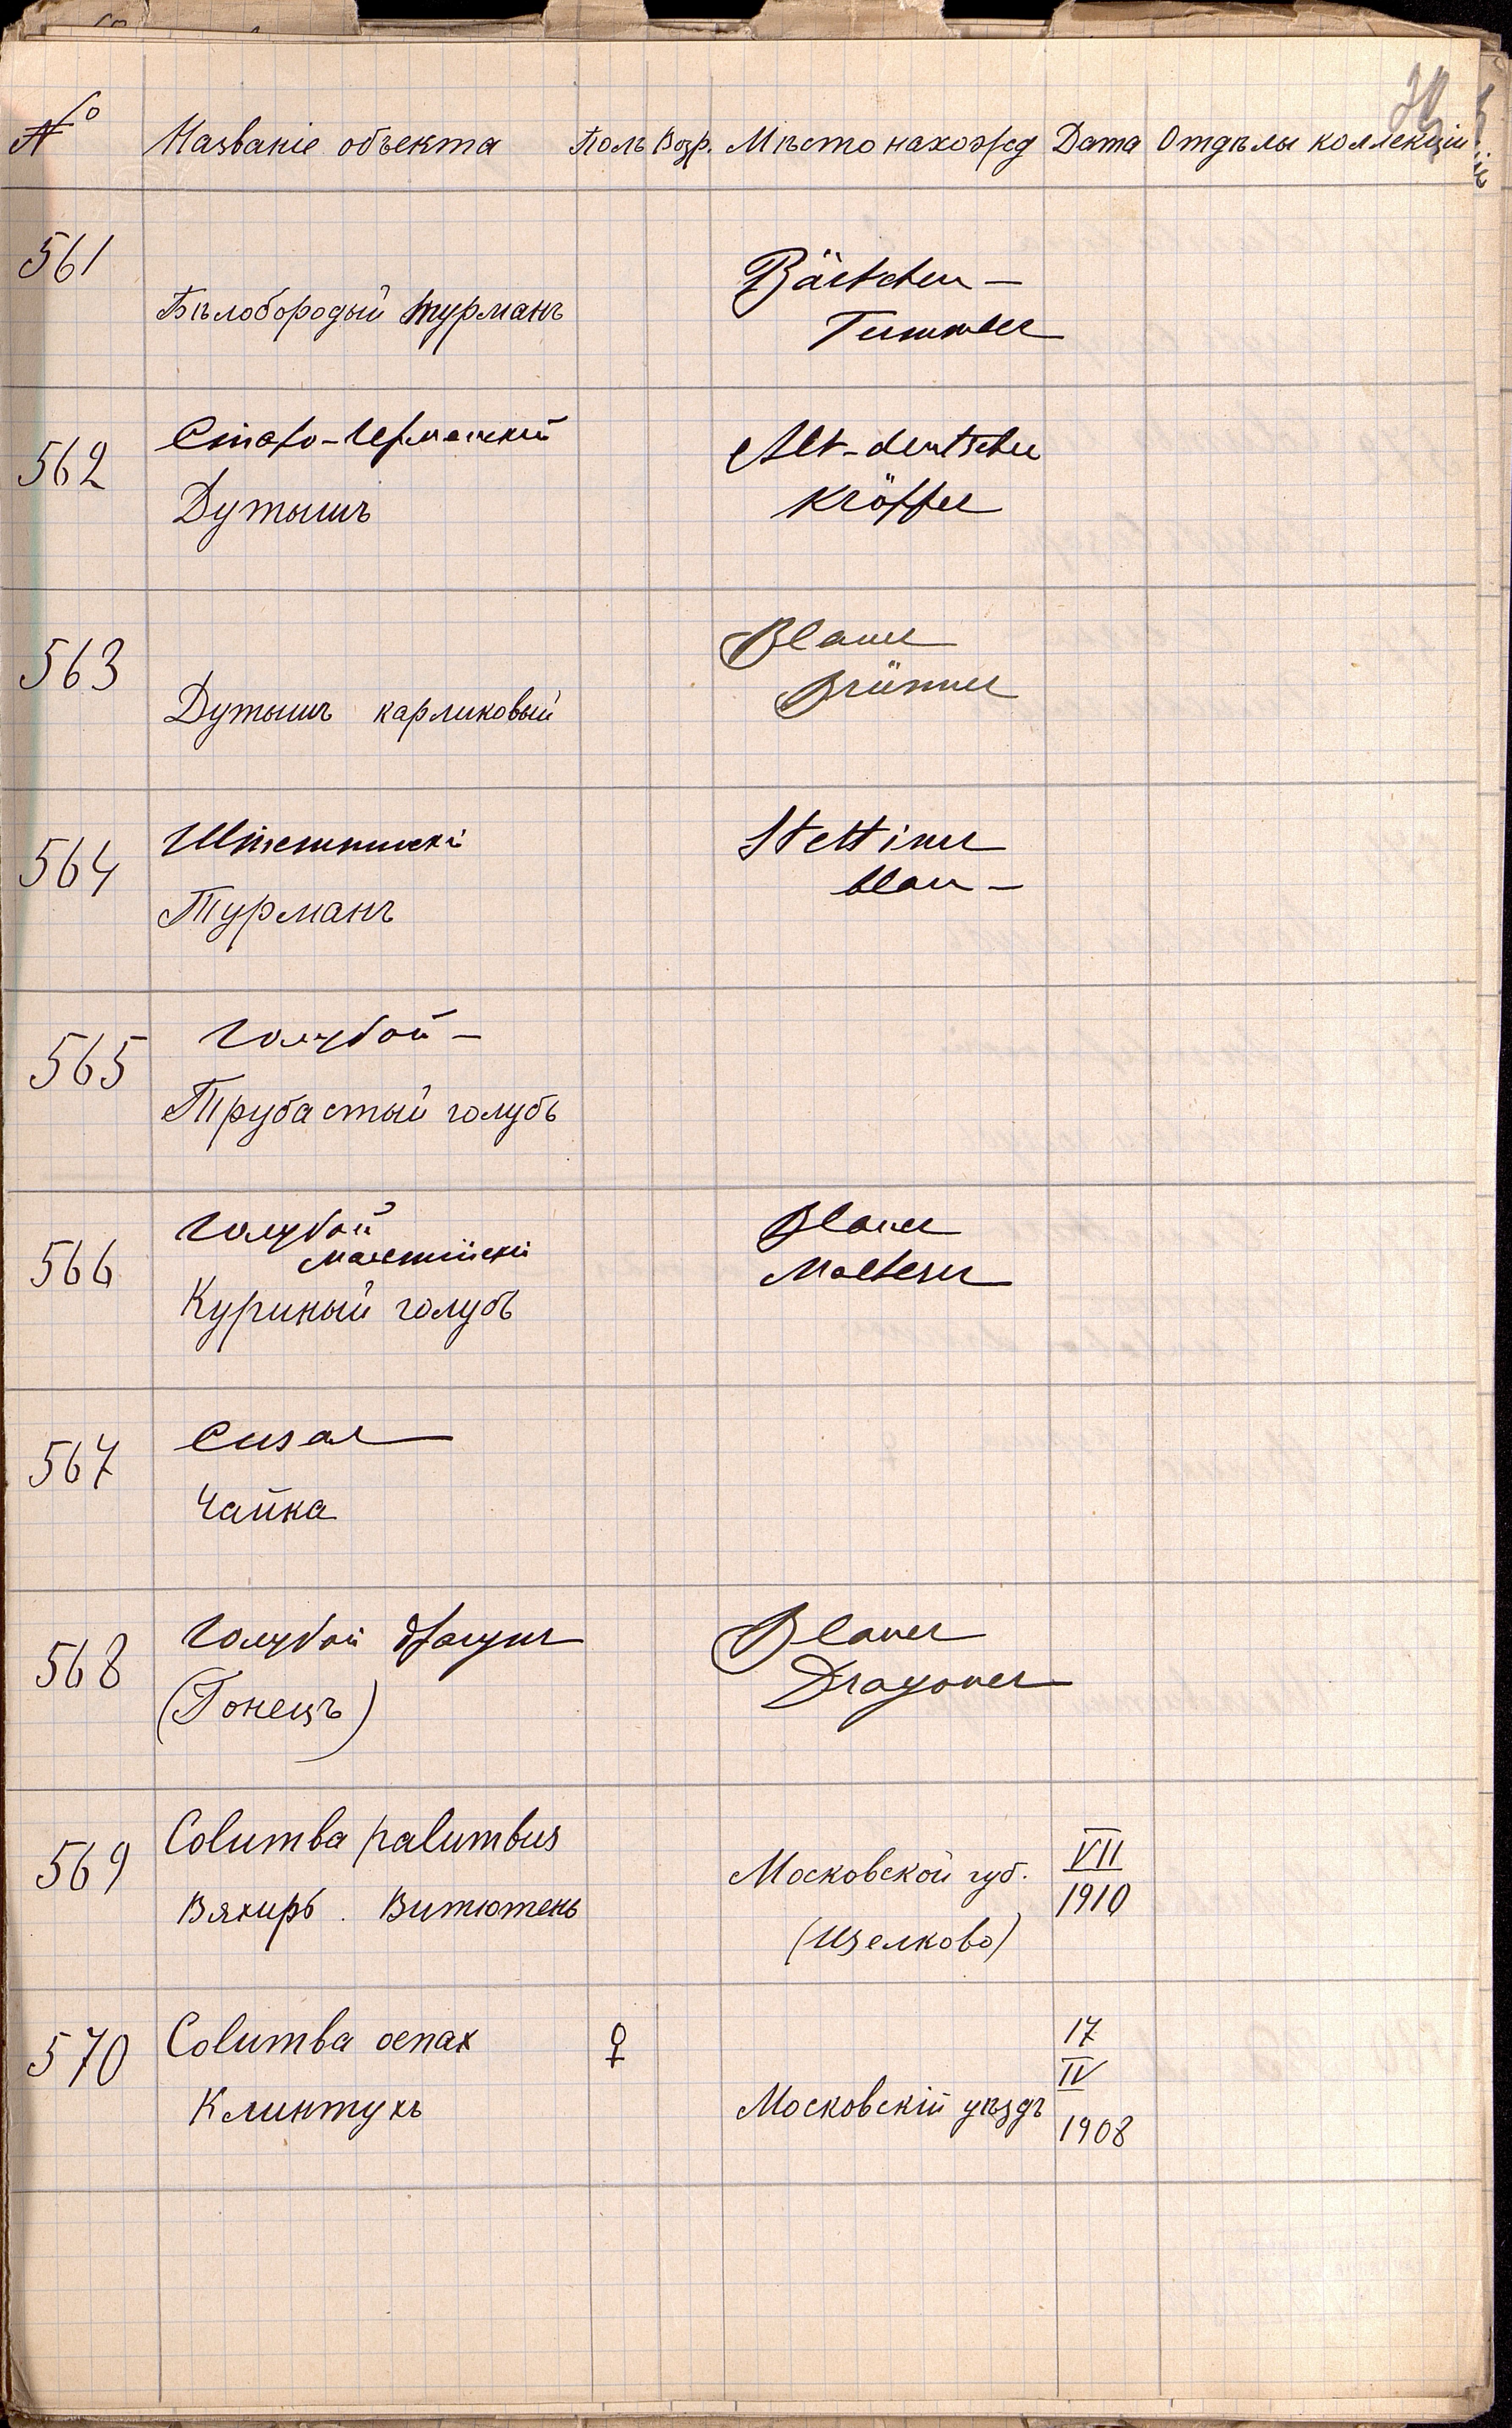 № Названіе объекта Полъ Возр. Мѣстонахожд Дата Отдѣлы коллекціи
561
Бѣлобородый турманъ
Bärtchen –
Tümmler
562
Старо-Германскій
Дутышъ
Alt-deutscher
Kröpfer
563
Дутышъ карликовый
Blauer
Brünner
564
Штеттинскій
Турманъ
Stettiner
blau –
565
Голубой –
Трубастый голубь
566
Голубой
мальтійскій
Куриный голубь
Blauer
Malteser
567
Сизая
Чайка
568
Голубой драгунъ
(Гонецъ)
Blauer
Dragoner
569
Columba palumbus
Вяхирь. Витютень
Московской губ.
(Щелково)
VII
1910
570
Columba oenax
Клинтухъ
♀
Московскій уѣздъ
17
IV
1908